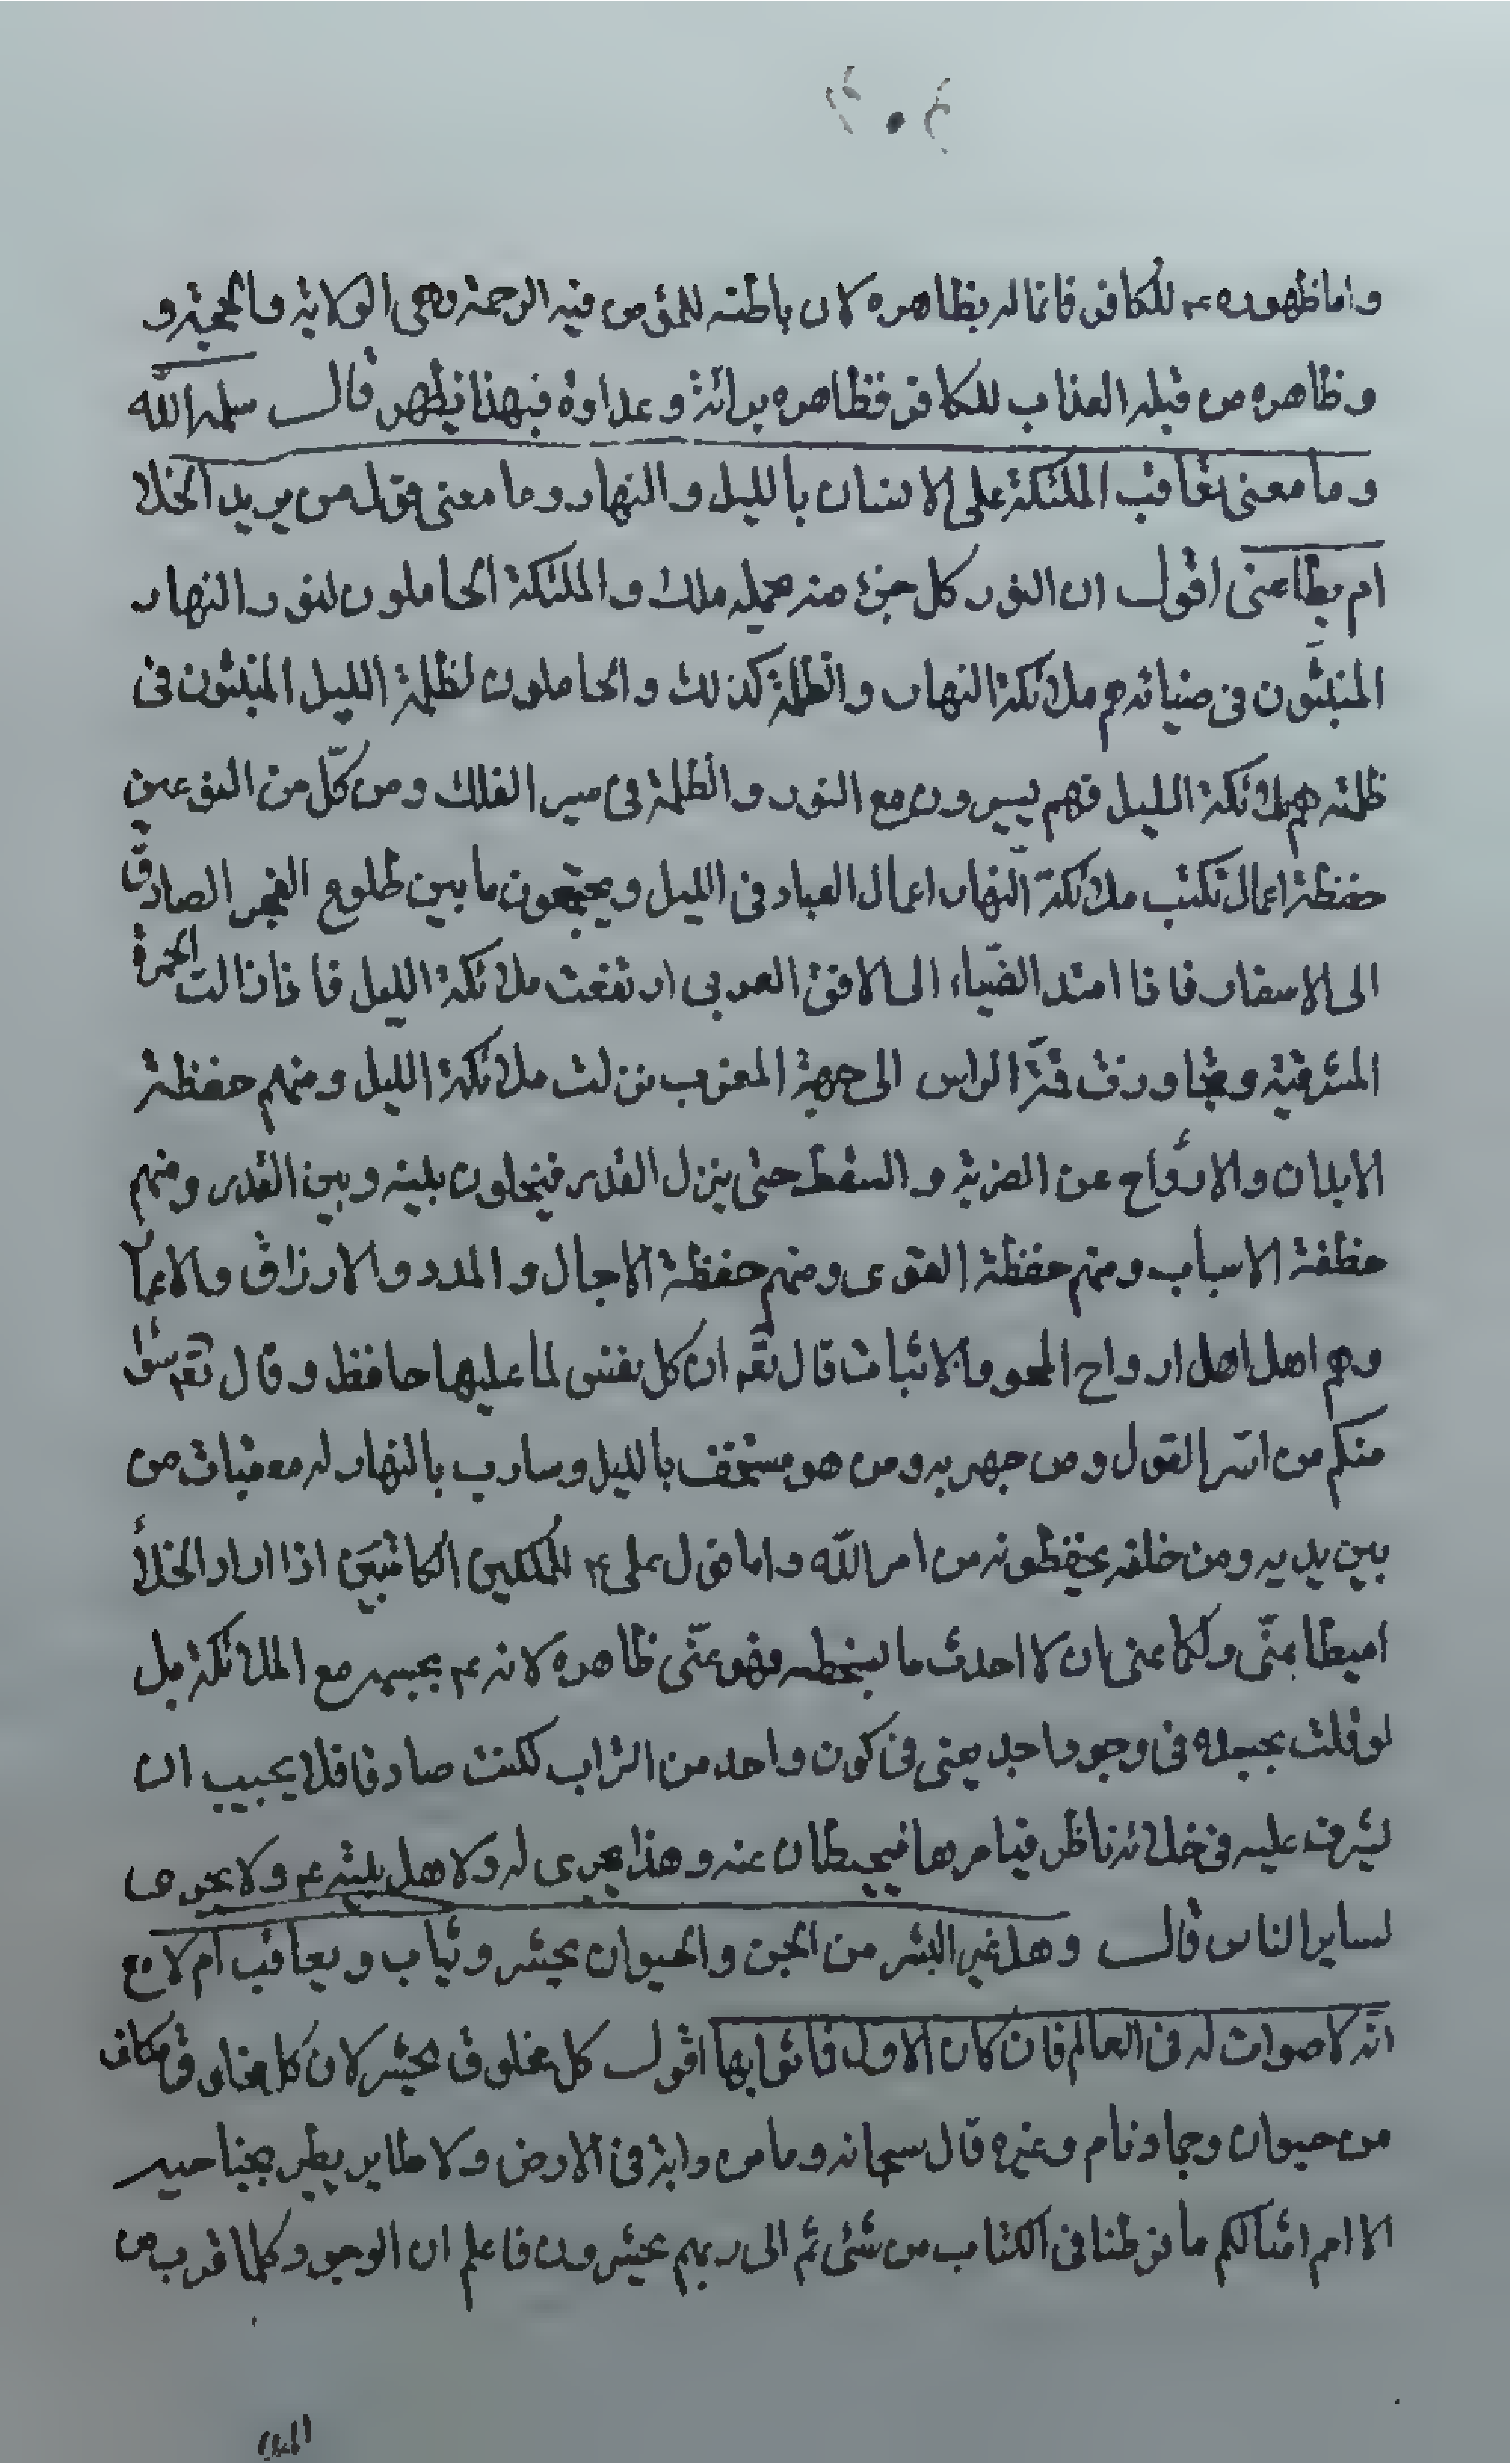 واما ظهوره ع للكافر فانما له بظاهره لان باطنه للمؤمن فيه الرحمة وهي الولاية والمحبة و
وظاهره من قبله العذاب للكافر فظاهره برائة وعداوة فبهذا يظهر قال سلمه الله
وما معنى تعاقب الملئكة على الانسان بالليل والنهار وما معنى قوله من يريد الخلا
ام يطا عنى اقول ان النور كل جزء منه يحمله ملك والملئكة الحاملون لنور النهار
المنبثون في ضيائه هم ملائكة النهار والظلمة كذلك والحاملون لظلمة الليل المنبثون في
ظلمته هم ملائكة الليل فهم يسيرون مع النور والظلمة في سير الفلك ومن كلّ من النوعين
حفظة اعمال تكتب ملائكة النهار اعمال العباد في الليل ويجتمعون ما بين طلوع الفجر الصادق
الى الاسفار فاذا امتد الضياء الى الافق الغربى ارتفعت ملائكة الليل فاذا زالت الحمرة
المشرقية وتجاوزت قمّة الراس الى جهة المغرب نزلت ملائكة الليل ومنهم حفظة
الابدان والارواح عن الضربة والسقطة حتى ينزل القدر فيخلون بينه وبين القدر ومنهم
حفظة الاسباب ومنهم حفظة القوى ومنهم حفظة الاجال والمدد والارزاق والاعمال
وهم اهل اهل ارواح المحو والاثبات قال تعم ان كل نفس لما عليها حافظ وقال تعم سواء
منكم من اسر القول ومن جهر به ومن هو مستخف بالليل وسارب بالنهار له معقبات من
بين يديه ومن خلفه يحفظونه من امر الله واما قول على ع للملكين الكاتبين اذا اراد الخلأ
اميطا عنّى ولكما عنى ان لا احدث ما يسخطه فهو عنّى ظاهره لانه ع بجسمه مع الملائكة بل
لو قلت بجسده في وجود واحد يعنى فى كون واحد من التراب لكنت صادقا فلا يحب ان
ليشرف عليه فى خلائه ناظر فيامرهما فيحيطان عنه وهذا يجرى له ولاهل بيته ع ولا يجرى
لساير الناس قال وهل غير البشر من الجن والحيوان يحشر ويثاب ويعاقب ام لا مع
انه لا صوات له فى العالم فان كان الاول فاثوابها اقول كل مخلوق يحشر لان كل مخلوق مكلف
من حيوان وجماد ونام وغيره قال سبحانه وما من دابة فى الارض ولا طاير يطير بجناحيه
الا امم امثالكم ما فرطنا فى الكتاب من شئ ثم الى ربهم يحشرون فاعلم ان الوجود كلما قرب من